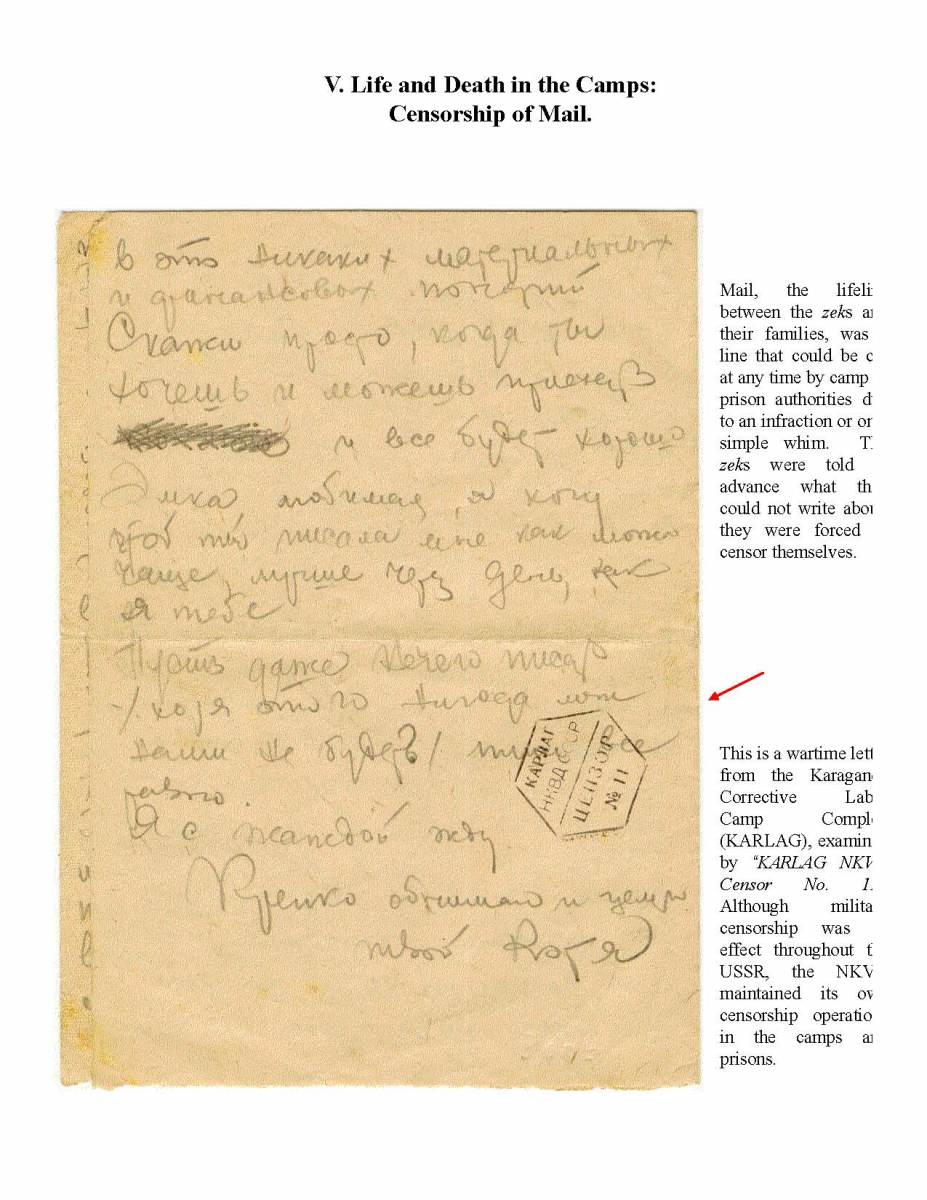 V. Life and Death in the Camps:
Censorship of Mail.
в это никаких материальных
и финансовых
Скажи просто, когда ты
хочешь и можешь приехать
и все будет хорошо
Эмка, любимая, я хочу
чтоб ты писала мне как можно
чаще, лучше через день, как
я тебе
Пусть даже нечего писать
/хотя этого никогда
не будет/ пиши все
равно.
Я с жаждой жду
Крепко обнимаю и целую
твой Котя
КАРЛАГ
НКВД СССР
ЦЕНЗОР
№ 11
Mail, the lifeli
between the zeks a
their families, was
line that could be c
at any time by camp
prison authorities d
to an infraction or or
simple whim. T
zeks were told
advance what th
could not write abou
they were forced
censor themselves.
This is a wartime lett
from the Karagan
Corrective Lab
Camp Compl
(KARLAG), examin
by “KARLAG NKV
Censor No. 1
Although milita
censorship was
effect throughout t
USSR, the NKV
maintained its ov
censorship operatio
in the camps a
prisons.